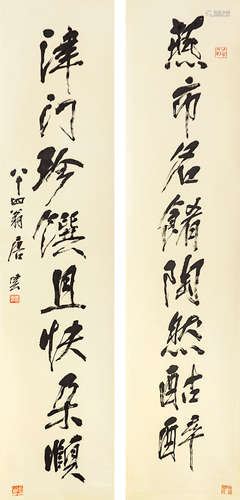 燕市名肴陶然酣醉
津门珍馔且快朵颐
八十四翁唐云